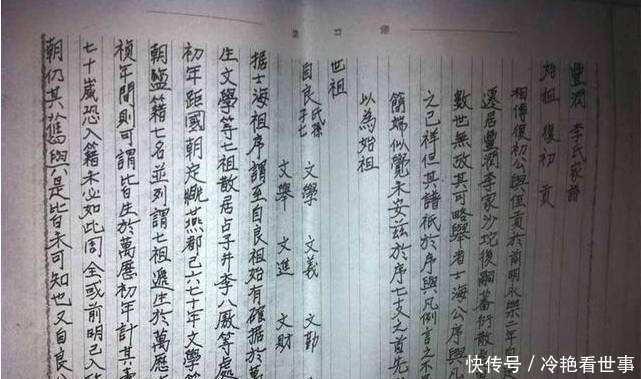 豐潤 李氏家譜
始祖 復初 貢
相傳復初公與伯貢於前明永樂二年
遷居豐潤李家沙坨後嗣蕃衍散
數世無攷其可略舉者士海公序與凡
之已祥但其譜祇於序與凡例言之不
簡端似覺未安茲於序七支之首先
以為始祖
世祖
自良 氏孫 子七 文學 文義 文勤
文舉 文進 文財
據士海祖序謂至自良祖始有確據於萬
生文學等七祖散居占子井李八廒等處
初年距國朝定鼎燕都已六七十年文學等
朝盛籍七名並列謂七祖遞生於萬歷
禎年間則可謂皆生於萬歷初年計其壽
七十歲恐入籍未必如此周全或前明已入
朝仍其舊與只是皆未可知也又自良公
快传号/冷艳看世事